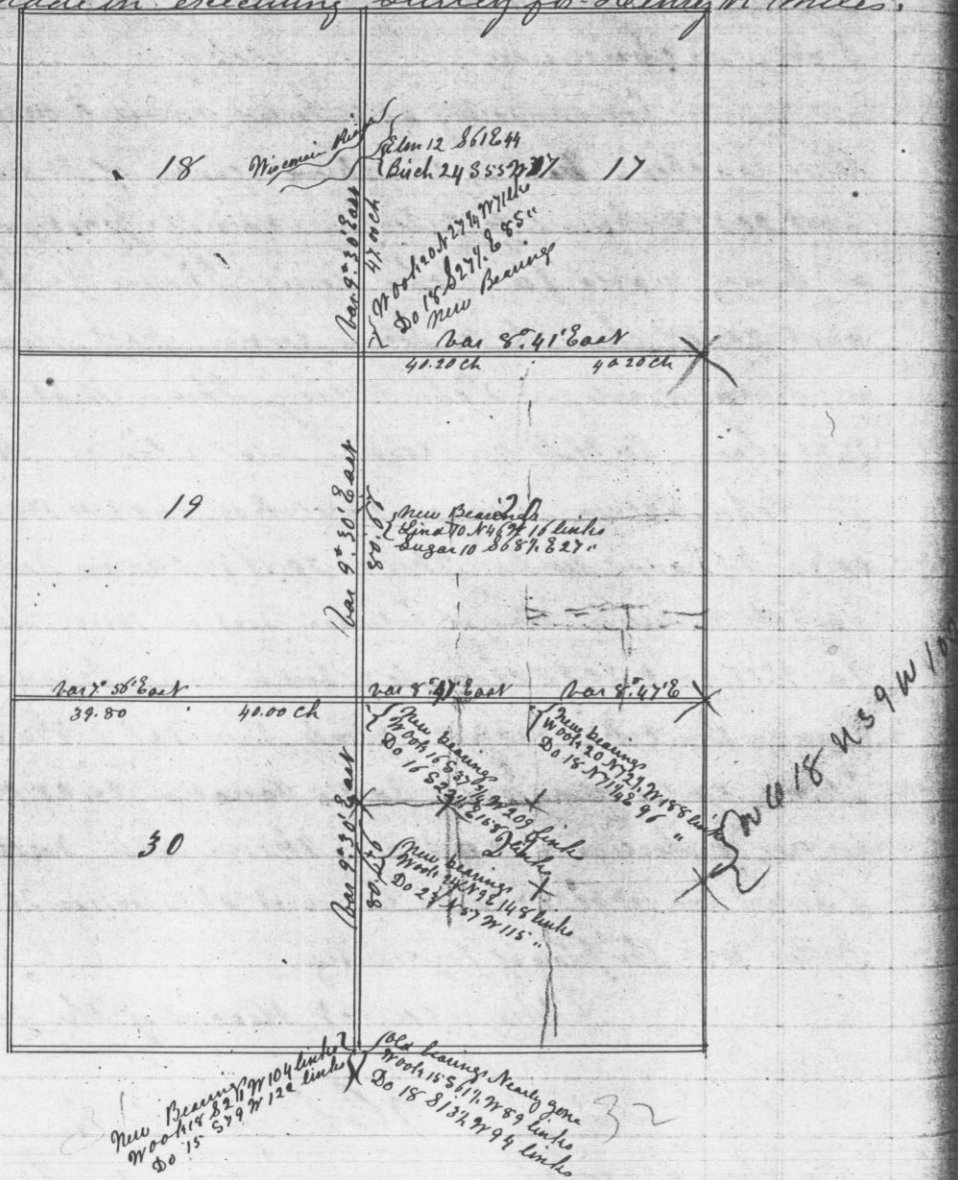 made in executing survey for Henry M Miles.
18
Wisconsin River
Elm 12 S61E44
Birch 24 S55W
17
Var 9°30' East
47.00 Ch
W Oak 20 N27¼W71lks
Do 18 S27½ E 85"
New Bearing
Var 8°.41' East
40.20 Ch
40 20 Ch
19
Var 9°30' East
80.
20
New Bearings
Lind 10 N46W 16 links
Sugar 10 S68½ E27"
Var 7°56' East
39.80
40.00 Ch
Var 8° East
Var 8°.47'E
30
Var 9°30' East
80.
New bearings
W Oak 16 S37¾W 209 link
Do 16 S22¼E 158 links
New bearings
W Oak 20 N72½W 188 links
Do 18 N71¼E 96 "
New bearings
W Oak 24 N9E 148 links
Do 28 N57W 115"
W O 18 N59W
New Bearings
W Oak 18 W 104 links
Do 15 S79 W 122 links
Old bearings Nearly gone
W Oak 15 S61½W89 links
Do 18 S13¾W94 links
32